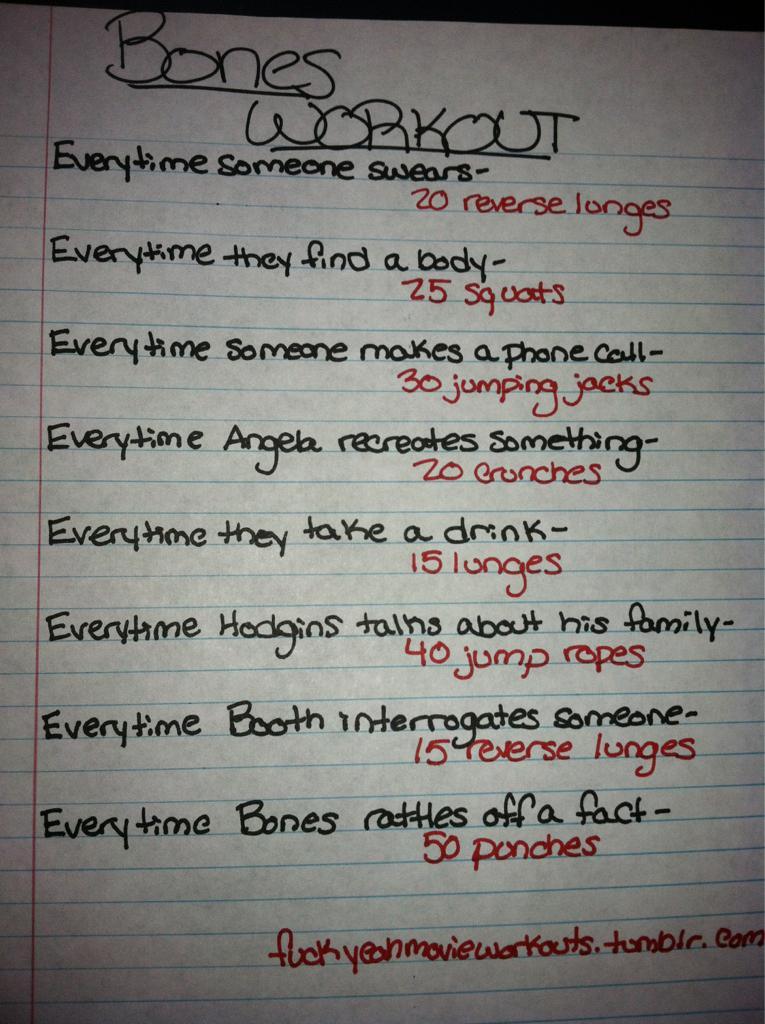 Bones
WORKOUT
Everytime someone swears-
20 reverse lunges
Everytime they find a body-
25 squats
Everytime someone makes a phone call-
30 jumping jacks
Everytime Angela recreates something-
20 crunches
Everytime they take a drink-
15 lunges
Everytime Hodgins talks about his family-
40 jump ropes
Everytime Booth interrogates someone-
15 reverse lunges
Everytime Bones rattles off a fact-
50 punches
fuckyeahmovieworkouts.tumblr.com